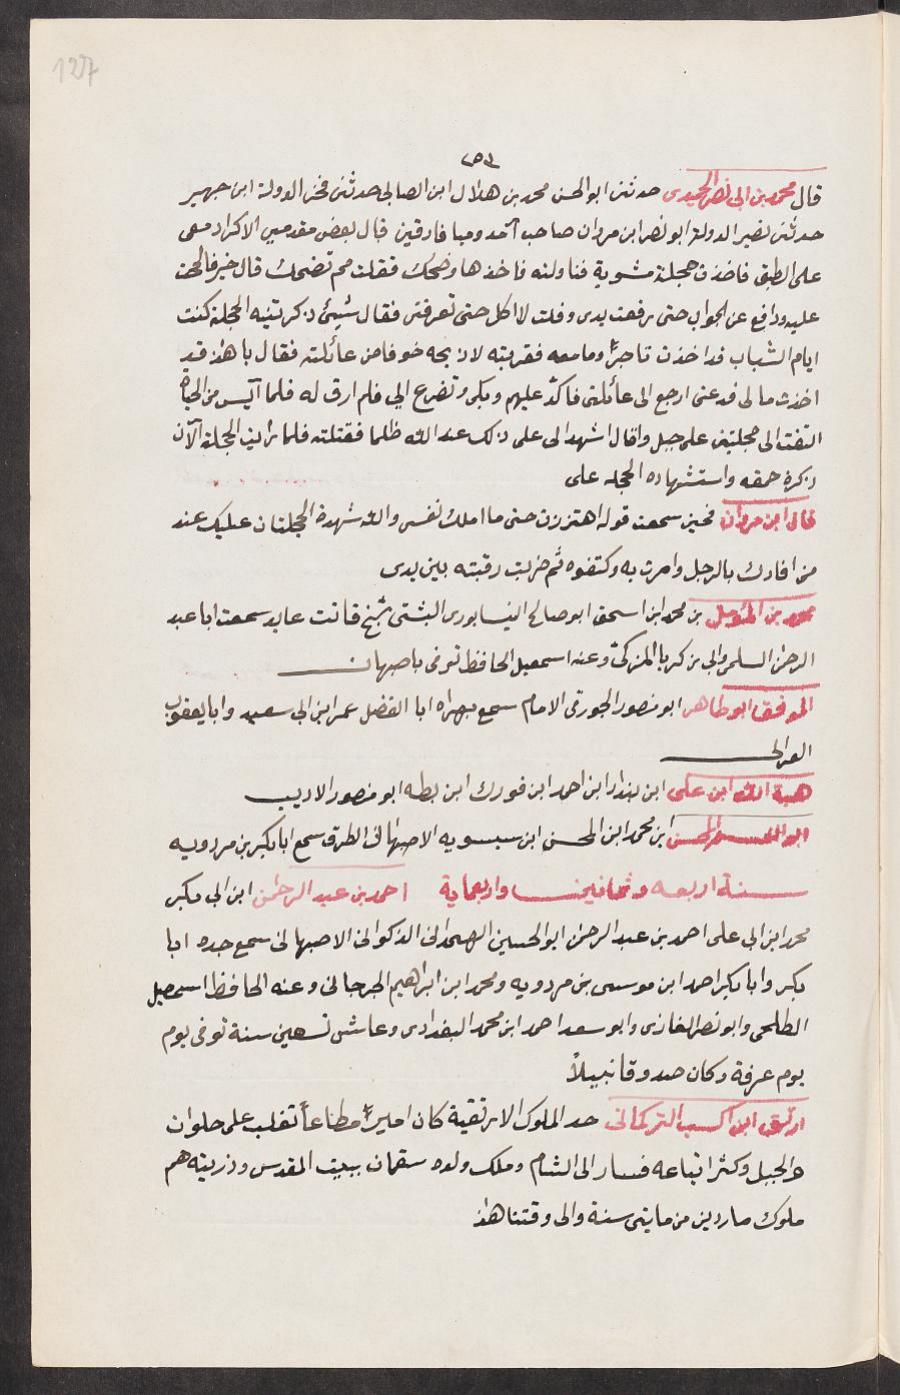 127
قال محمد بن ابى نصر الحميدى حدثنى ابو الحسن محمد بن هلال ابن الصابى حدثنى فخر الدولة ابن جهير
حدثنى نصير الدولة ابو نصر ابن مروان صاحب آمد وميا فارقين قال بعض مقدمين الاكراد معى
على الطبق فاخذت حجلة مشوية فناولته فاخذها وضحك فقلت مم تضحك قال خير فالححت
عليه ودافع عن الجواب حتى رفعت يدى وقلت لا اكل حتى تعرفنى فقال شيئ ذكرتنيه الحجلة كنت
ايام الشباب قد اخذت تاجرا وما معه فقربته لاذبحه خوفا من عائلته فقال يا هذا قد
اخذت مالى فدعنى ارجع الى عائلتى فاكد عليهم وبكى وتضرع الي فلم ارق له فلما آيس من الحياة
التفت الى حجلتين على جبل وقال اشهدا لى على ذلك عند الله ظلما فقتلته فلما رايت الحجلة الآن
ذكرة حمقه واستشهاده الحجله على
قال ابن مروان فحين سمعت قوله اهتززت حتى ما املك نفسى والله شهدة الحجلتان عليك عند
من اقادك بالرجل وامرت به وكتفوه ثم ضربت رقبته بين يدى
محمد بن المؤمل بن محمد ابن اسحق ابو صالح النيسابورى البشتى شيخ قانت عابد سمعت ابا عبد
الرحمن السلمى وابى زكريا المزكى وعنه اسمعيل الحافظ توفى باصبهان
الموفق ابو طاهر ابو منصور الجورقى الامام سمع بهراه ابا الفضل عمر ابن ابى سعيد وابا يعقوب
القراب
هبة الله ابن على ابن بندار ابن احمد ابن فورك ابن بطه ابو منصور الاديب
ابو القسم الحسن ابن محمد ابن الحسن ابن سيسويه الاصبهانى الطرقى سمع ابا بكر بن مردويه
سنة اربعه وثمانين واربعماية احمد بن عبد الرحمن ابن ابى بكر
محمد ابن ابى على احمد بن عبد الرحمن ابو الحسين الهمدانى الذكوانى الاصبهانى سمع جده ابا
بكر وابا بكر احمد ابن موسى بن مردويه ومحمد ابن ابراهيم الجرجانى وعنه الحافظ اسمعيل
الطلحى وابو نصر الغازى وابو سعد احمد ابن محمد البغدادى وعاش تسعين سنة توفى يوم
يوم عرفة وكان صدوقا نبيلاً
ارتق ابن اكسب التركمانى جد الملوك الارتقية كان اميراً مطاعاً تغلب على حلوان
والجبل وكثر اتباعه فسار الى الشام وملك ولده سقمان ببيت المقدس وذريته هم
ملوك ماردين من مايتى سنة والى وقتنا هذا